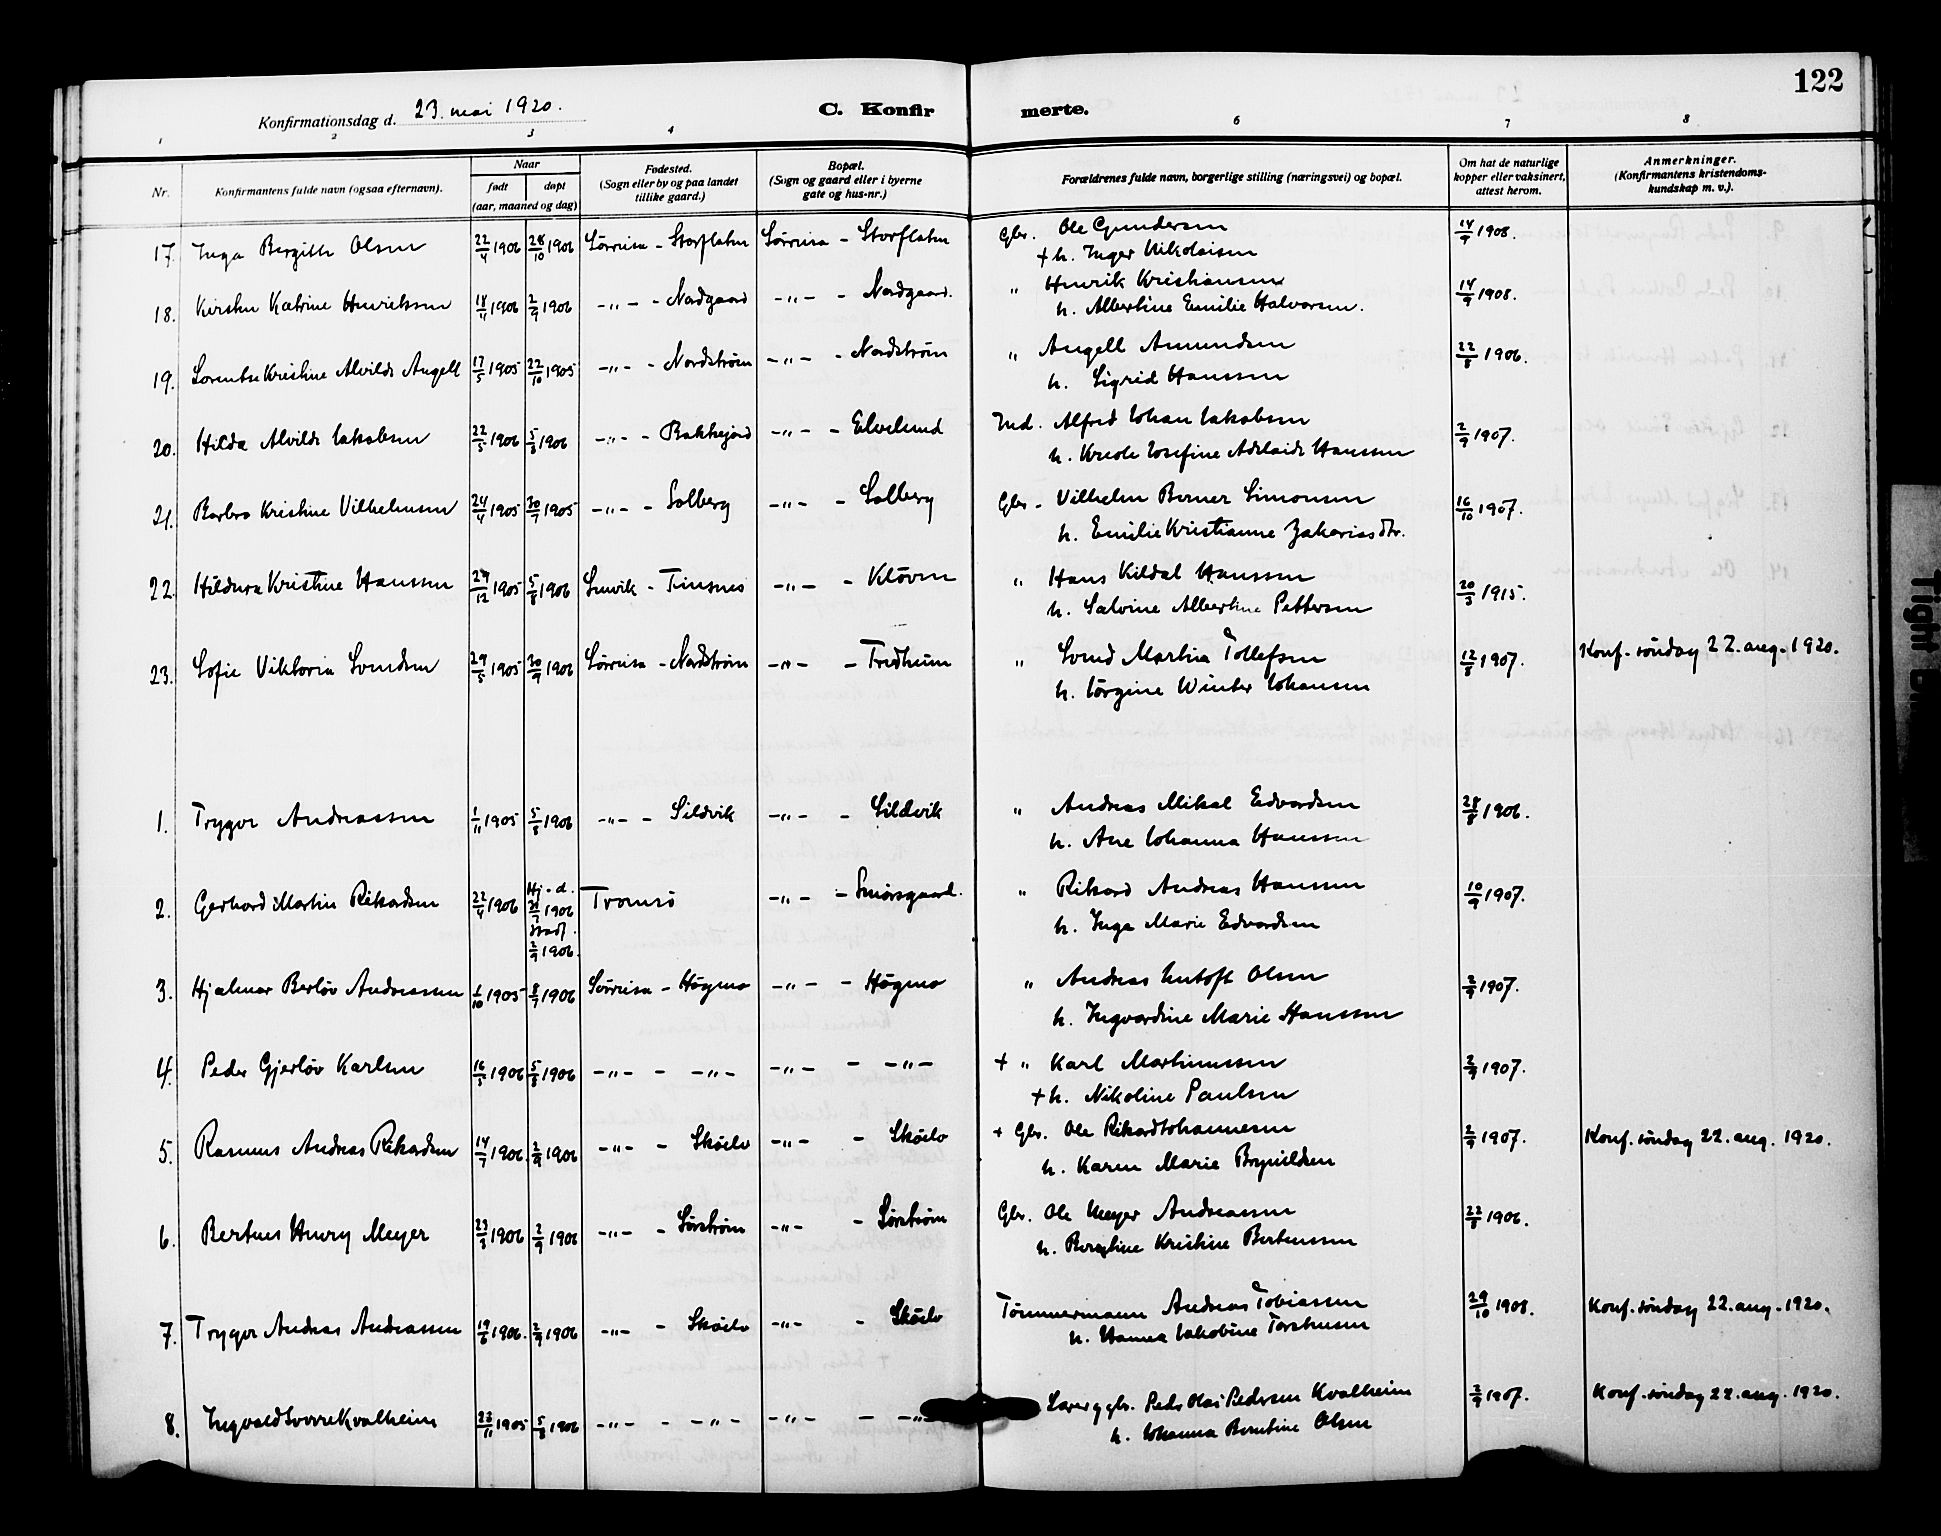 122
Konfirmationsdag d. 23. mai 1920.
C. Konfirmerte.
1 2 3 4 6 7 8
Nr. Konfirmantens fulde navn (ogsaa efternavn). Naar født døpt (aar, maaned og dag) Fødested. (Sogn eller by og paa landet tillike gaard.) Bopæl. (Sogn og gaard eller i byerne gate og hus-nr.) Forældrenes fulde navn, borgerlige stilling (næringsvei) og bopæl. Om hat de naturlige kopper eller vaksinert, attest herom. Anmerkninger. (Konfirmantens kristendomskundskap m. v.).
17. Inga Bergitte Olsen 22/4 1906 28/10 1906 Sörreisa - Storflaten Sörreisa - Storflaten Gbr. Ole Gundersen 14/9 1908.
+ h. Inger Nikolaisen
18. Kirsten Katrine Henriksen 18/11 1906 2/9 1906 -"- - Nordgaard -"- - Nordgaard. " Henrik Kristiansen 14/9 1908.
h. Albertine Emilie Halvorsen.
19. Lorentse Kristine Alvilde Angell 17/5 1905 22/10 1905 -"- - Nordstrøm -"- - Nordstrøm " Angell Amundsen 22/8 1906.
h. Sigrid Hanssen
20. Hilda Alvilde Jakobsen 22/5 1906 5/8 1906 -"- - Bakkejord -"- - Elvelund Ind. Alfred Johan Jakobsen 2/9 1907.
h. Kreole Josefine Adelaide Hanssen
21. Barbro Kristine Vilhelmsen 24/4 1905 30/7 1905 -"- - Solberg -"- - Solberg Gbr. - Vilhelm Berner Simonsen 16/10 1907.
h. Emilie Kristianne Zakariasdtr.
22. Hildura Kristine Hanssen 29/12 1905 5/8 1906 Lenvik - Finsnes -"- - Kløven " Hans Kildal Hanssen 20/3 1915.
h. Salvine Albertine Pettersen
23. Sofie Viktoria Svendsen 29/5 1905 30/9 1906 Sörreisa - Nordstrøm -"- - Fredheim " Svend Martin Tollefsen 12/8 1907. Konf. söndag 22. aug. 1920.
h. Jörgine Winter Johansen
1. Trygve Andreassen 1/11 1905 5/8 1906 -"- - Sildvik -"- - Sildvik " Andreas Mikal Edvardsen 28/8 1906.
h. Ane Johanna Hanssen
2. Gerhard Martin Rikardsen 22/4 1906 Hj-d. 31/7 1906 Tromsö -"- - Smörsgaard. " Rikard Andreas Hanssen 10/9 1907.
stadf. 2/9 1906. h. Inga Marie Edvardsen
3. Hjalmar Berlöv Andreassen 1/10 1905 8/7 1906 Sörreisa - Högmo -"- - Högmo " Andreas Kutoft Olsen 2/9 1907.
h. Ingvardine Marie Hanssen
4. Peder Gjerlöv Karlsen 16/5 1906 5/8 1906 -"- - -"- -"- - -"- + " Karl Martinussen 2/9 1907.
+ h. Nikoline Paulsen
5. Rasmus Andreas Rikardsen 14/7 1906. 2/9 1906 -"- - Sköelv -"- - Sköelv + Gbr. Ole Rikard Johannesen 2/9 1907. Konf. söndag 22. aug. 1920.
h. Karen Marie Brynildsen
6. Berteus Henry Meyer 23/3 1906 2/9 1906 -"- - Sörstrøm -"- - Sörstrøm Gbr. Ole Meyer Andreassen 22/8 1906.
h. Bergtine Kristine Berteussen
7. Trygve Andreas Andreassen 19/6 1906. 2/9 1906 -"- - Sköelv -"- - Sköelv Tömmermann Andreas Tobiassen 29/10 1908. Konf. söndag 22. aug. 1920.
h. Hanna Jakobine Torstensen
8. Ingvald Sverre Kvalheim 23/11 1905 5/8 1906 -"- - -"- -"- - -"- Lærer og gbr. Peder Olai Pedersen Kvalheim 2/9 1907. Konf. söndag 22. aug. 1920.
h. Johanna Berntine Olsen
Tight